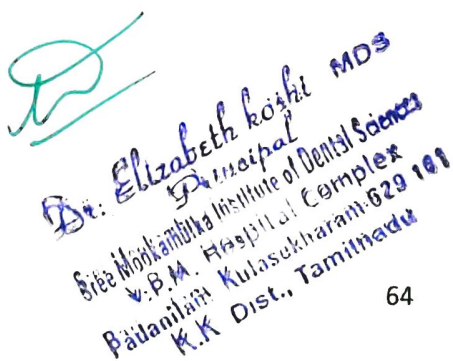 Dr. Elizabeth koshi MDS
Principal
Sree Mookambika Institute of Dental Sciences
V.P.M. Hospital Complex
Padanilam Kulasekharam-629 161
K.K Dist., Tamilnadu
64